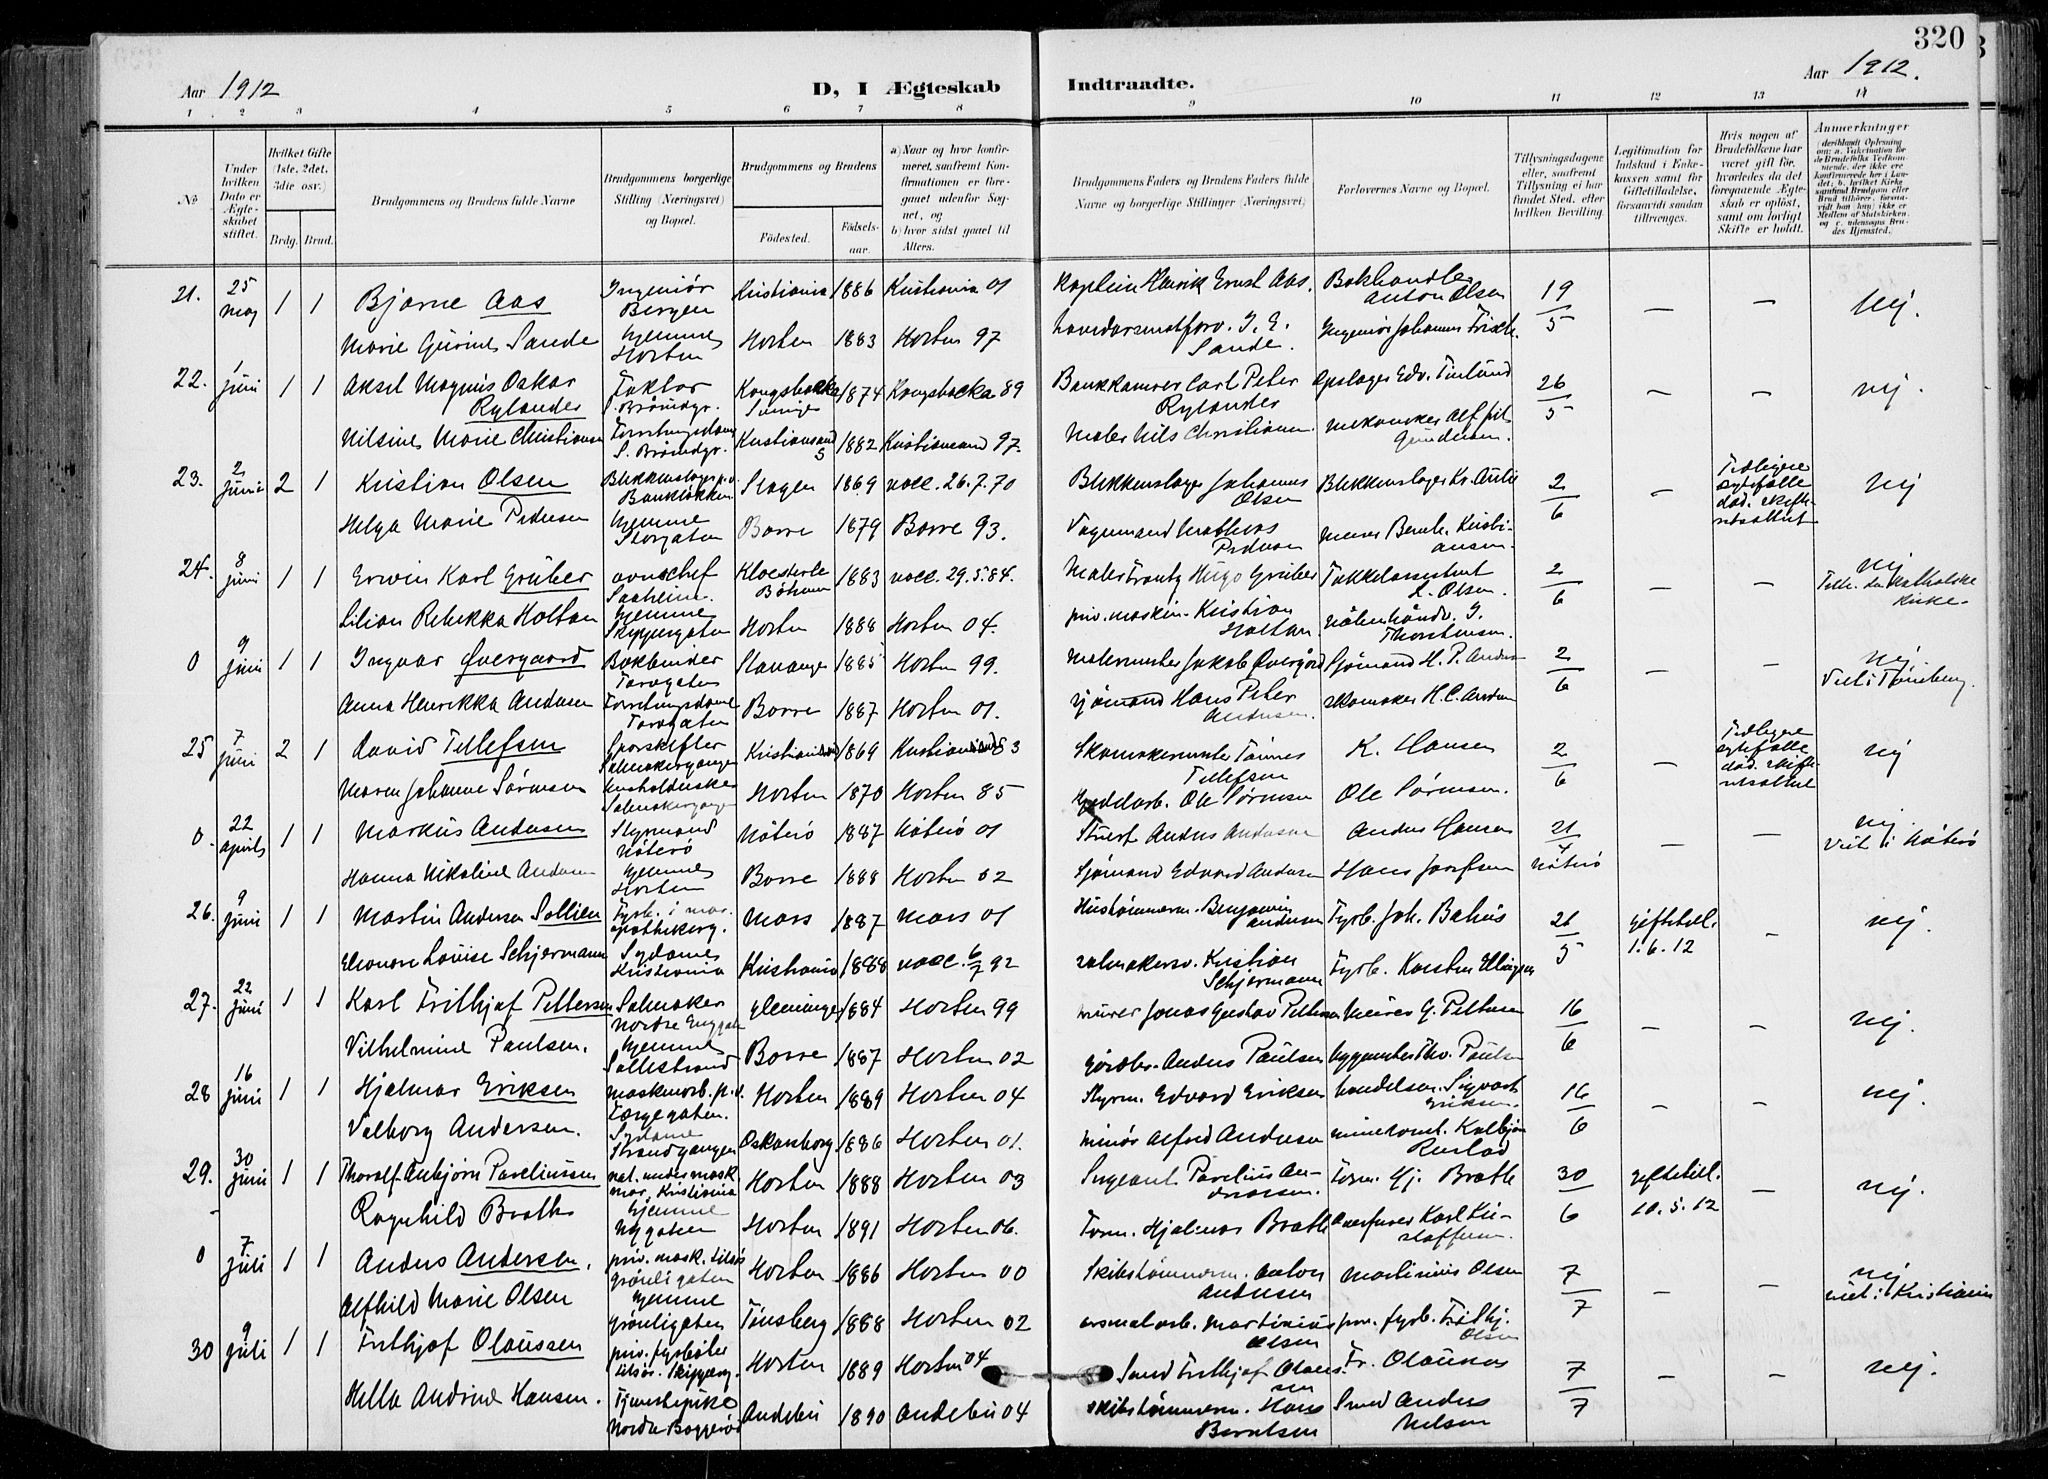 320
Aar 1912
D, I Ægteskab Indtraadte.
Aar 1912.
1 2 3 4 5 6 7 8 9 10 11 12 13 14
No
Under hvilken Dato er Ægteskabet stiftet.
Hvilket Gifte (1ste, 2det, 3die osv.)
Brdg. Brud.
Brudgommens og Brudens fulde Navne
Brudgommens borgerlige Stilling (Næringsvei) og Bopæl.
Brudgommens og Brudens
Födested. Födselsaar.
a) Naar og hvor konfirmeret, saafremt Konfirmationen er foregaaet udenfor Sognet, og
b) hvor sidst gaaet til Alters.
Brudgommens Faders og Brudens Faders fulde Navne og borgerlige Stillinger (Næringsvei)
Forlovernes Navne og Bopæl.
Tillysningsdagene eller, saafremt Tillysning ei har fundet Sted, efter hvilken Bevilling.
Legitimation for Indskud i Enkekassen samt for Giftetilladelse, forsaavidt saadan tiltrænges.
Hvis nogen af Brudefolkene har været gift för, hvorledes da det foregaaende Ægteskab er oplöst, samt om lovligt Skifte er holdt.
Anmærkninger
21. 25 maj 1 1 Bjarne Aas Ingeniør Bergen Kristiania 1886 Kristiania 01 Kaptein Henrik Ernst Aas. Bokhandler Anton Olsen 19/5 — — Nej.
Marie Gurine Sande Hjemme Horten Horten 1883 Horten 97 J. E. Sande. Ingeniør Johannes
22. 1 juni 1 1 Aksel Magnus Oskar Rylander Faktor Kongsbacka Sverige 1874 Kongsbacka 89 Bankkamrer Carl Peter Rylander Opslager Edv. 26/5 — — nej.
Nilsine Marie Christiansen Kristiansand S 1882 Kristiansand 97. Maler Nils Christiansen.
23. 2 juni 2 1 Kristian Olsen Blikkenslager Slagen 1869 vacc. 26.7.70 Blikkenslager Johannes Olsen Blikkenslager Kr. Aulie 2/6 — Tidligere ægtefælle død. Skifteattest Nej
Helga Marie Pedersen Hjemme Storgaten Borre 1879 Borre 93. Vognmand Mathias Pedersen Murer Bernh. Kristiansen.
24. 8 juni 1 1 Erwin Karl Grüber Saaheim. Kloesterle Böhmen 1883 vacc. 29.5.84. Maler Hugo Grüber L. Olsen. 2/6 — — Nej Tilh. den katholske kirke.
Lilian Rebekka Holtan Hjemme Skippergaten Horten 1888 Horten 04. Kristian Holtan J. Thorstensen.
0 9 juni 1 1 Ingvar Øvergaard Bokbinder Torvgaten Stavanger 1885 Horten 99. Malermester Jakob Øvergård Sjømand H. P. Andersen 2/6 — — Nej Viet i Tønsberg.
Anna Henrikka Andersen Forretningsdame Torvgaten Borre 1887 Horten 01. Sjømand Hans Peter Andersen. Skomaker H. C. Andersen
25 7 juni 2 1 David Tellefsen Sporskifter Salmakergangen Kristiansand 1869 Kristiansand 83 Skomakermester Tønnes Tellefsen K. Hansen 2/6 — Tidligere ægtefælle død. Skifteattest nej
Maren Johanne Sørensen Husholderske Salmakergangen Horten 1870 Horten 85 Ole Sørensen Ole Sørensen.
0. 22 april 1 1 Markus Andersen Styrmand Nøterø Nøterø 1887 Nøterø 01 Stuert Anders Andersen Anders Hansen 21/4 Nøterø — — nej. Viet i Nøterø
Hanna Nikoline Andersen Hjemme Horten Borre 1888 Horten 02 Sjømand Edvard Andersen Hans Josefsen
26. 9 juni 1 1 Martin Andersen Sollien Fyrb. i mar. Moss 1887 Moss 01 Hustømmerm. Benjamin Andersen Fyrb. Joh. Bahus 26/5 Giftetill. 1.6.12 — nej.
Eleonore Lovise Schjermann Sydame Kristiania Kristiania 1888 vacc. 6/7 92 Salmakersv. Kristian Schjermann Fyrb. Karsten Ellingsen
27. 22 juni 1 1 Karl Frithjof Pettersen Salmaker Nordre Enggate Glemminge 1884 Horten 99 Murer Jonas Gustav Pettersen Murer G. Pettersen 16/6 — — nej.
Vilhelmine Paulsen. Hjemme Falkestrand Borre 1887 Horten 02 Gårdbr. Anders Paulsen Byggmester Thv. Paulsen
28 16 juni 1 1 Hjalmar Eriksen maskinarb. p.v. Færgegaten. Horten 1889 Horten 04 Styrm. Edvard Eriksen Handelsm. Sigvart Eriksen. 16/6 — — nej.
Valborg Andersen. Sydame Strandgangen Oskarsborg 1886 Horten 01. Minør Alfred Andersen Kolbjørn Rustad
29. 30 juni 1 1 Thoralf Anbjørn Paveliussen nat. undermask. mar. Kristiania Horten 1888 Horten 03 Sergeant Pavelius Andreassen. Form. Hj. Brathe 30/6 Giftetill. 10.5.12 — nej.
Ragnhild Brathe Hjemme Nygaten Horten 1891 Horten 06. Form. Hjalmar Brathe Karl Kristoffersen.
0 7 juli 1 1 Anders Andersen. priv. mask. tilsøs Grønligaten Horten 1886 Horten 00 Skibstømmerm. Anton Andersen Martinius Olsen 7/7 — — nej viet i Kristiania
Alfhild Marie Olsen Hjemme Grønligaten Tønsberg 1888 Horten 02 Arsenalarb. Martinius Olsen priv. fyrb. Frithj. Olsen
30 9 juli 1 1 Frithjof Olaussen priv. fyrbøter tilsøs. Skipperg. Horten 1889 Horten 04 Smed Frithjof Olaussen Fr. Olaussen 7/7 — — nej.
Hella Andrine Hansen. Tjenestepike Andebu 1890 Andebu 04 Skibstømmerm. Hans Berntsen Smed Anders Nelsen